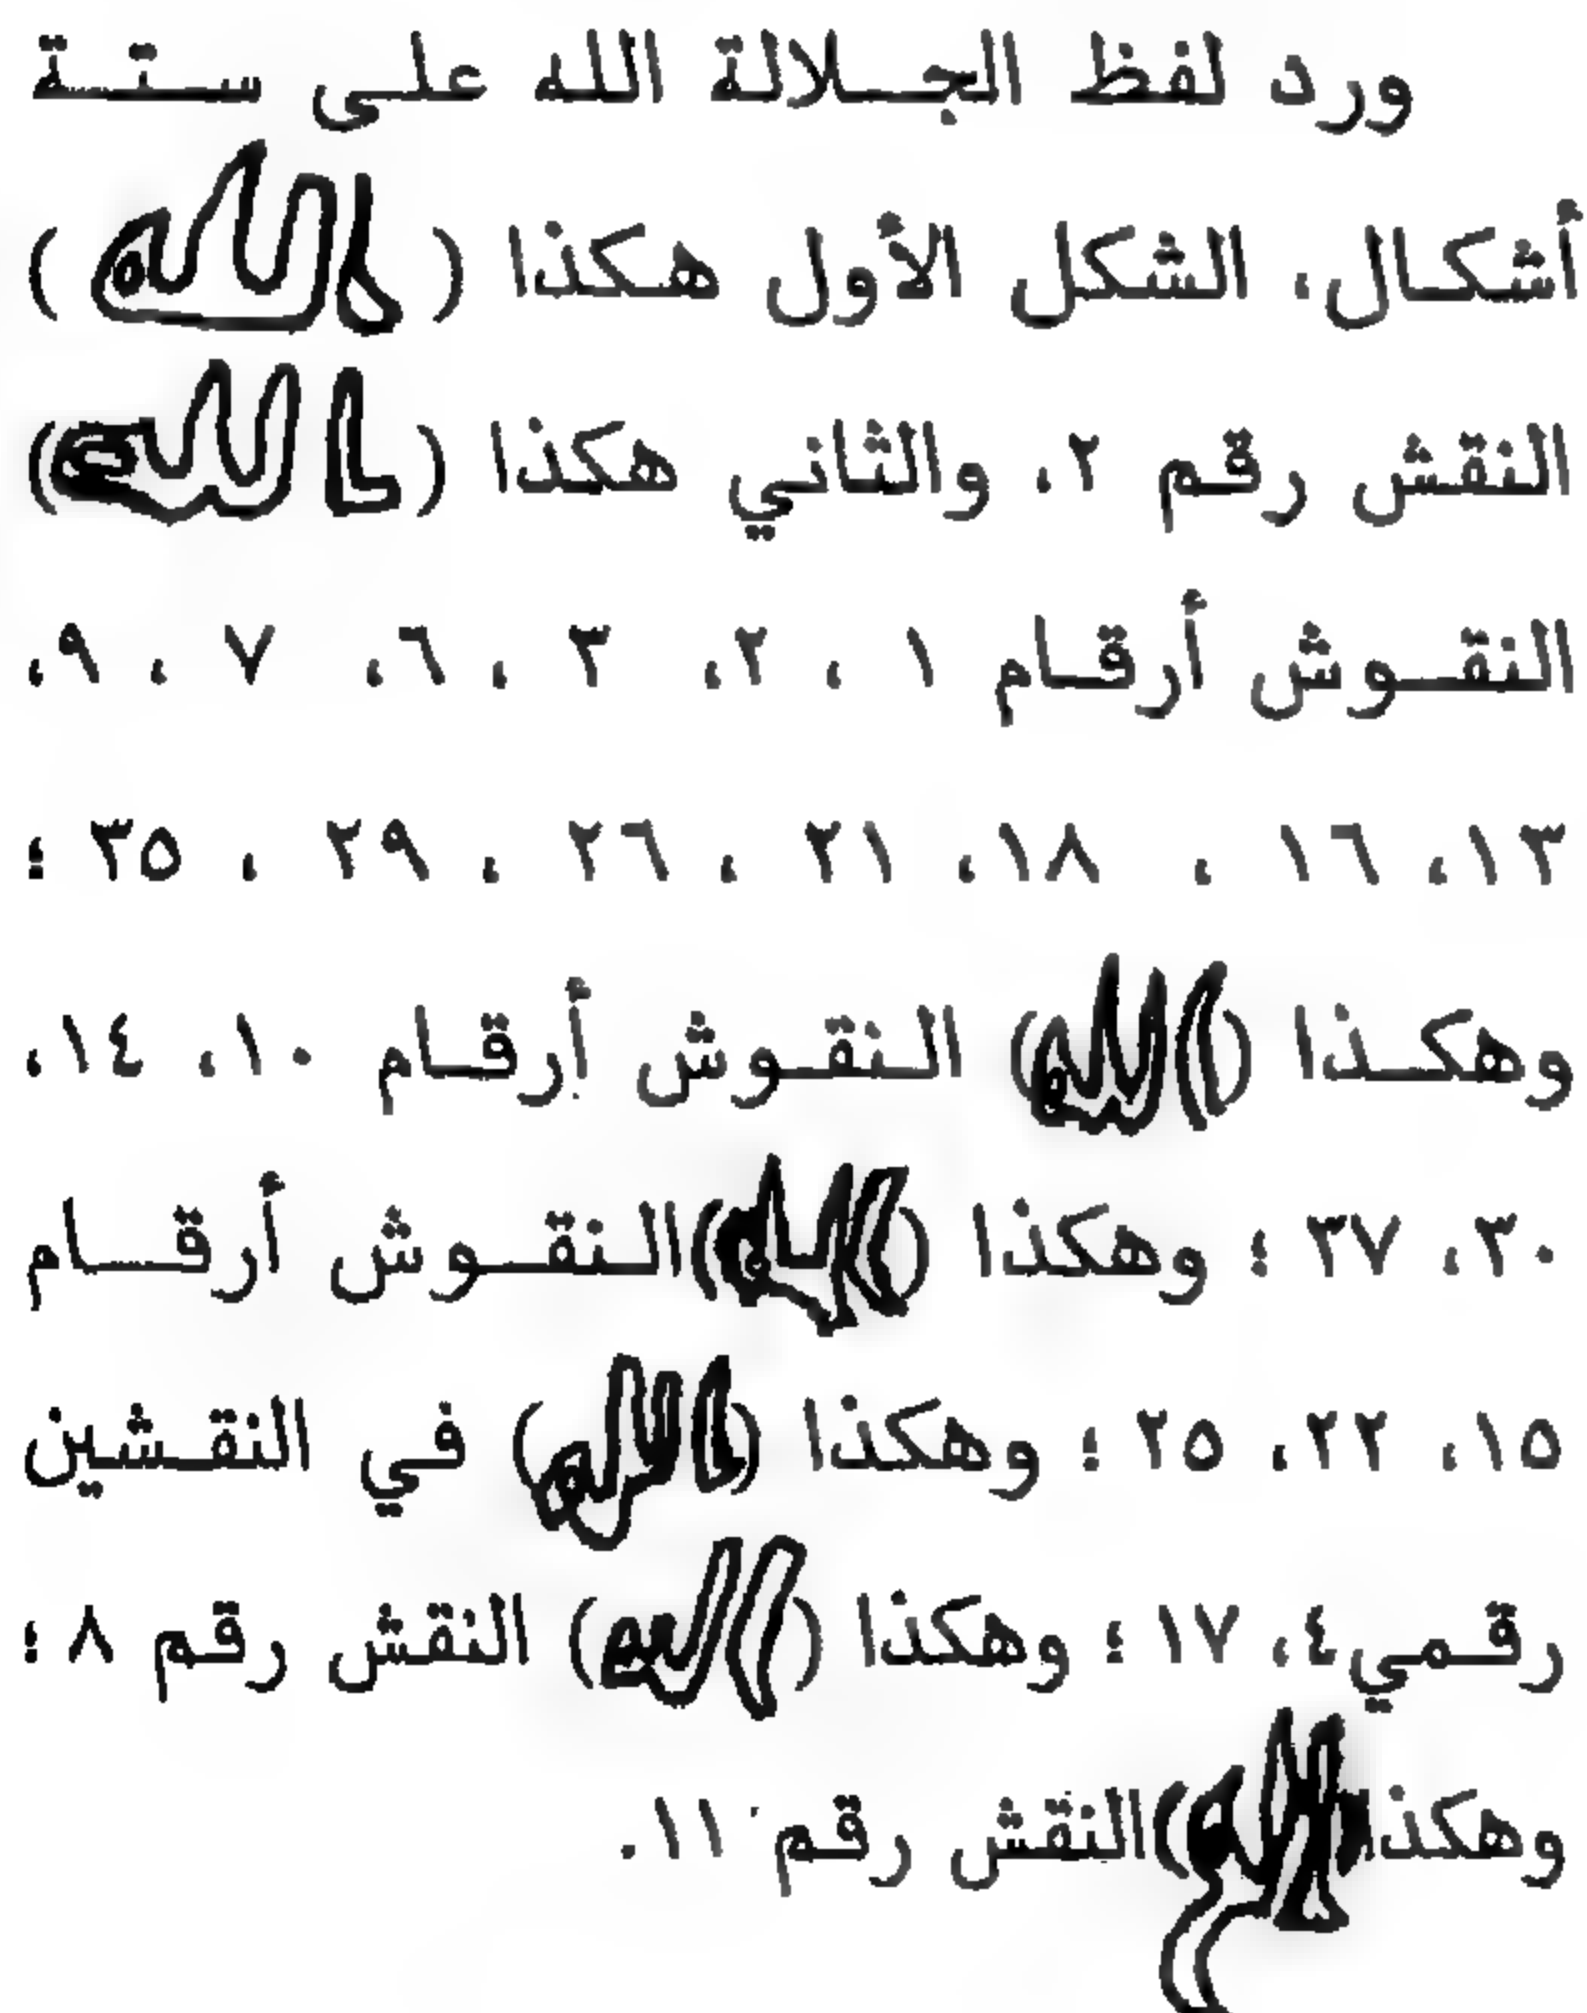 ورد لفظ الجلالة الله على ستة
أشكال، الشكل الأول هكذا (الله)
النقش رقم ٢، والثاني هكذا (الله)
النقوش أرقام ١ ، ٢، ٣ ، ٦، ٧ ، ٩،
١٣، ١٦ ، ١٨، ٢١ ، ٢٦ ، ٢٩ ، ٣٥ ؛
وهكذا (الله) النقوش أرقام ١٠، ١٤،
٣٠، ٣٧ ؛ وهكذا (الله) النقوش أرقام
١٥، ٢٢، ٢٥ ؛ وهكذا (الله) في النقشين
رقمي ٤، ١٧ ؛ وهكذا (الله) النقش رقم ٨ ؛
وهكذا (الله) النقش رقم ١١.